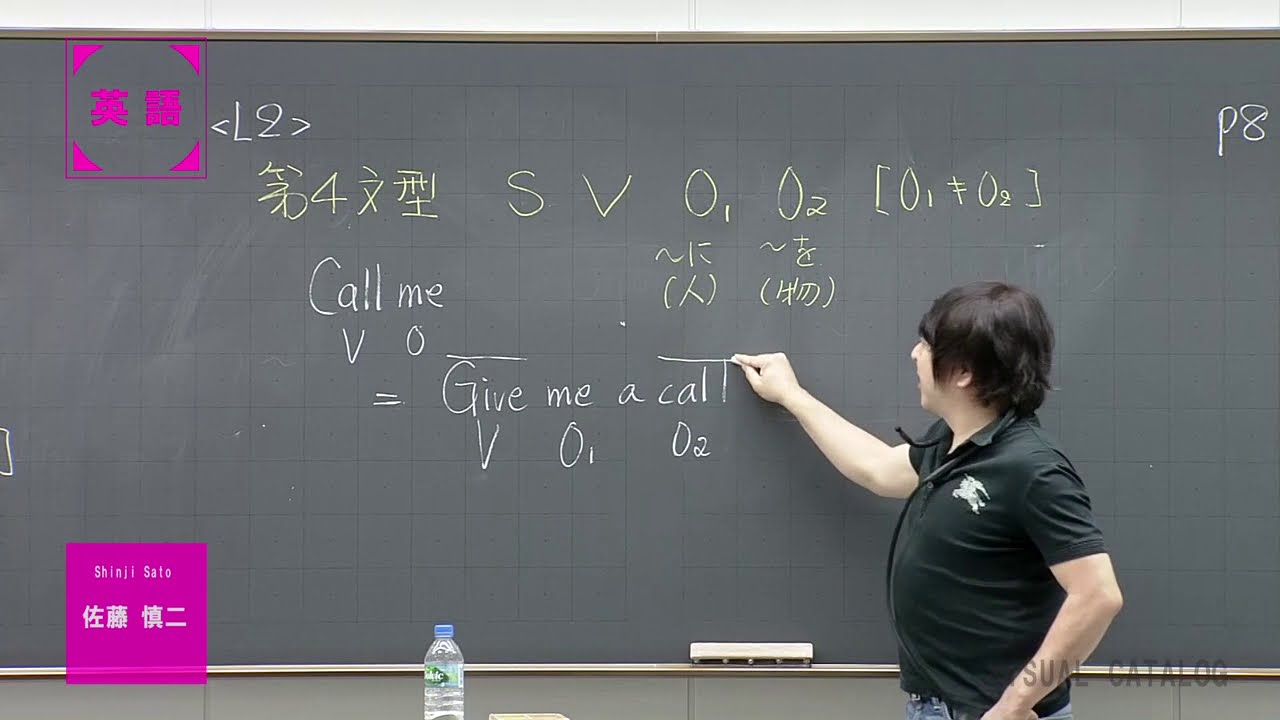 英語
<L2>
P8
第4文型 S V O₁ O₂ [O₁≠O₂]
～に ～を
(人) (物)
Call me
V O
= Give me a call
V O₁ O₂
Shinji Sato
佐藤 慎二
SUAL CATALOG